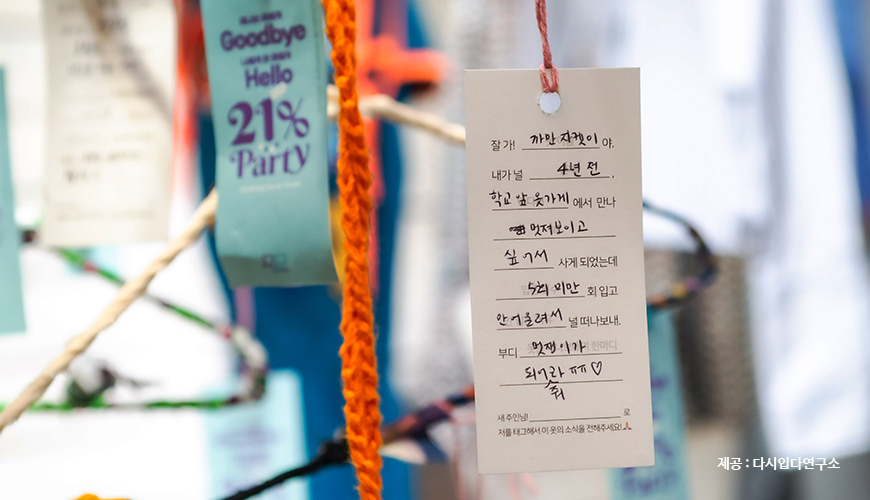 Goodbye
Hello
21%
Party
잘 가! 까만 자켓이 야.
내가 널 4년 전,
학교 앞 옷가게 에서 만나
멋져보이고
싶어서 사게 되었는데
5회 미만 회 입고
안어울려서 널 떠나보내.
부디 멋쟁이가
되어라 ㅠㅠ♡
줘
새 주인님! 로
저를 태그해서 이 옷의 소식을 전해주세요!
제공 : 다시입다연구소